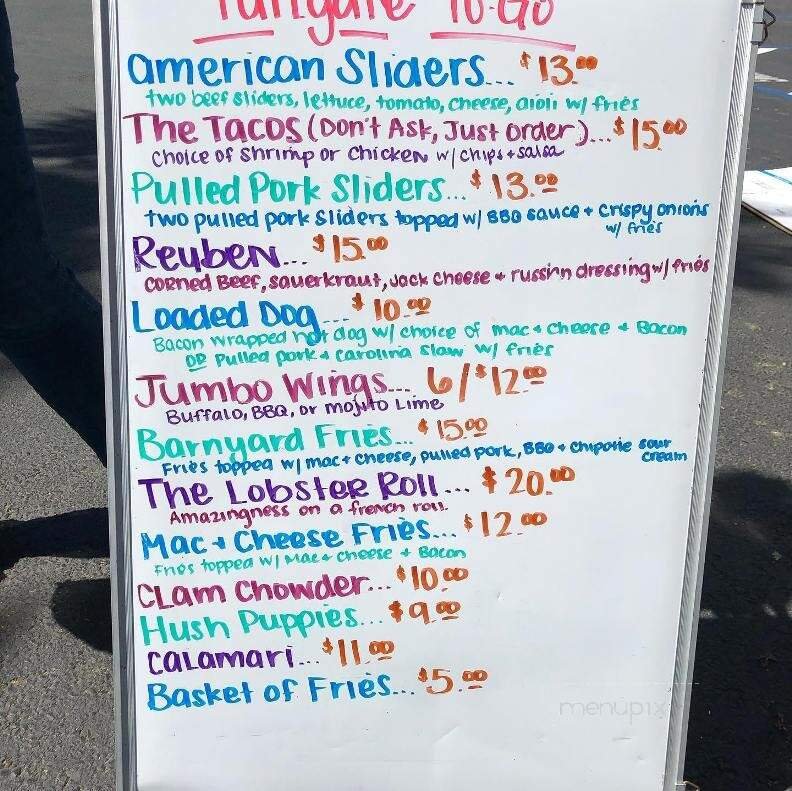 Tailgate To-Go
American Sliders... $13.00
two beef sliders, lettuce, tomato, cheese, aioli w/ fries
The Tacos (Don't Ask, Just Order)...$15.00
Choice of Shrimp or Chicken w/chips+salsa
Pulled Pork Sliders... $13.00
two pulled pork sliders topped w/ BBQ sauce + crispy onions
w/ fries
Reuben... $15.00
Corned Beef, sauerkraut, Jack cheese + russian dressing w/ fries
Loaded Dog... $10.00
Bacon wrapped hot dog w/ choice of mac + cheese + Bacon
OR Pulled pork + Carolina Slaw w/ fries
Jumbo Wings... 6/$12.00
Buffalo, BBQ, or mojito Lime
Barnyard Fries... $15.00
Fries topped w/ mac + cheese, pulled pork, BBQ + chipotle sour
cream
The Lobster Roll... $20.00
Amazingness on a french roll.
Mac + Cheese Fries... $12.00
Fries topped w/ Mac + cheese + Bacon
Clam Chowder... $10.00
Hush Puppies... $9.00
Calamari... $11.00
Basket of Fries... $5.00
menupix